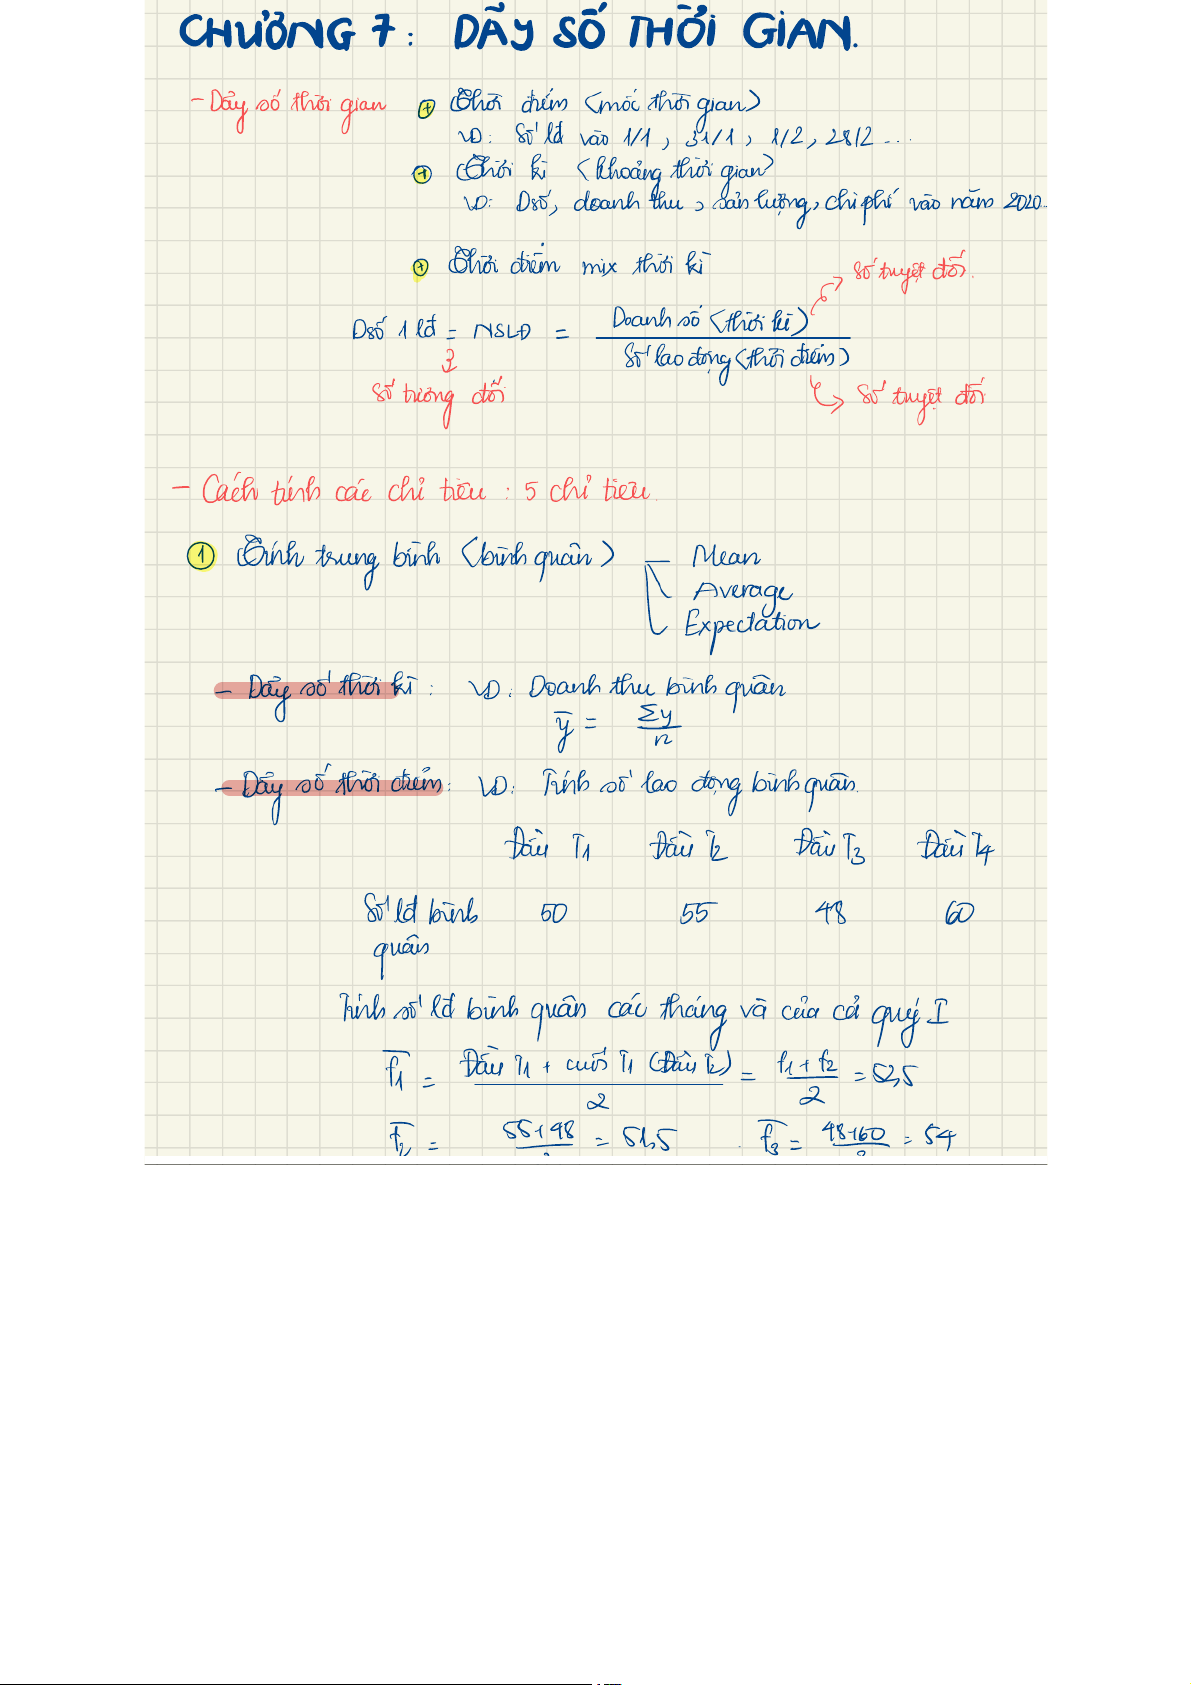 CHƯƠNG 7: DÃY SỐ THỜI GIAN.
- Dãy số thời gian + Thời điểm (mốc thời gian)
VD: Số lđ vào 1/1, 31/1, 1/2, 28/2 ...
+ Thời kì (Khoảng thời gian)
VD: Dsố, doanh thu, sản lượng, chi phí vào năm 2020
+ Thời điểm mix thời kì
Số tuyệt đối.
Dsố 1 lđ = NSLĐ = Doanh số (thời kì)
Số lao động (thời điểm)
Số tương đối
Số tuyệt đối
- Cách tính các chỉ tiêu: 5 chỉ tiêu.
1 Tính trung bình (bình quân) — Mean
Average
Expectation
- Dãy số thời kì: VD: Doanh thu bình quân
y̅ = Σy
n
- Dãy số thời điểm: VD: Tính số lao động bình quân.
Đầu T1 Đầu T2 Đầu T3 Đầu T4
Số lđ bình 50 55 48 60
quân
Tính số lđ bình quân các tháng và của cả quý I
f̅1 = Đầu T1 + cuối T1 (Đầu T2) = f1 + f2 = 52,5
2 2
f̅2 = 55+48 = 51,5 f̅3 = 48+60 = 54